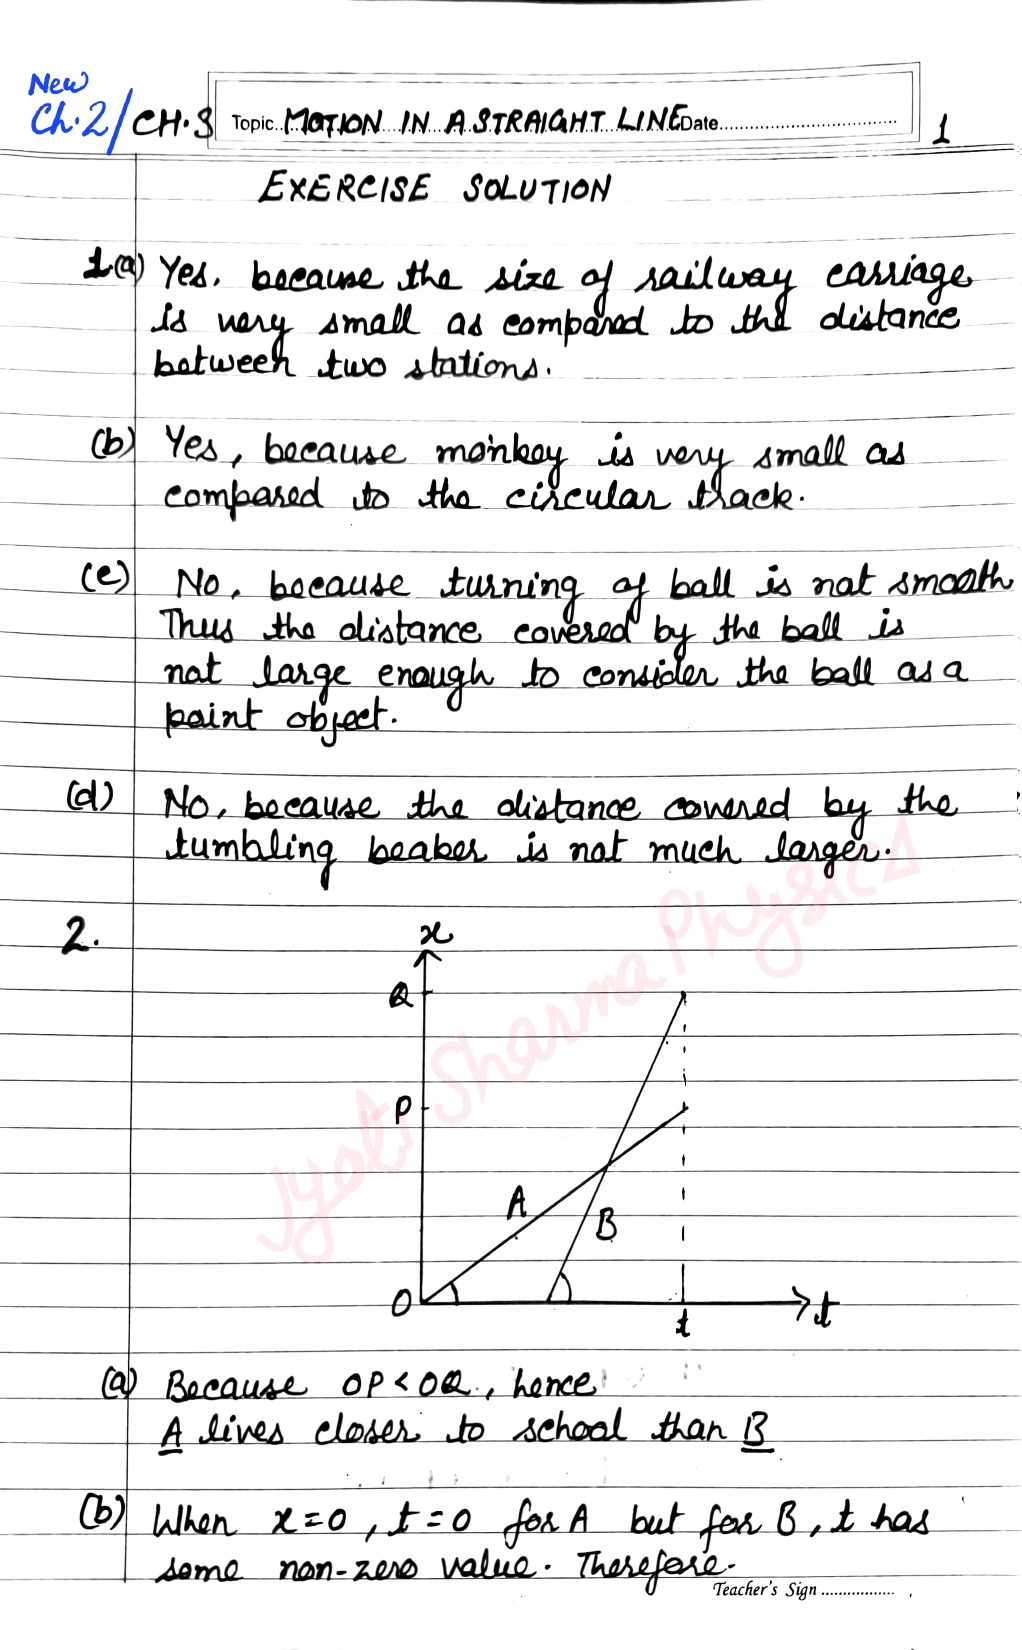 New
Ch.2/CH.3 Topic..MOTION IN A STRAIGHT LINE Date.......... 1
EXERCISE SOLUTION
1.(a) Yes, because the size of railway carriage
is very small as compared to the distance
between two stations.
(b) Yes, because monkey is very small as
compared to the circular track.
(c) No, because turning of ball is not smooth
Thus the distance covered by the ball is
not large enough to consider the ball as a
point object.
(d) No, because the distance covered by the
tumbling beaker is not much larger.
Jyoti Sharma Physics
2.
x
Q
P
A
B
O
t
t
(a) Because OP<OQ, hence
A lives closer to school than B
(b) When x=0, t=0 for A but for B, t has
some non-zero value. Therefore.
Teacher's Sign ..........